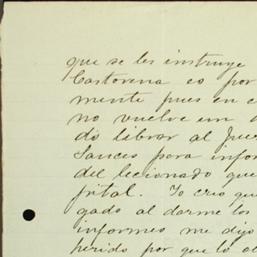 que se les instruye
Castorena es por
mente pues en e
no vuelve un
do librar al Jue
Sances para infor
del lecionado que
pital. Yo creo qu
gado al darme los
informes me dijo
herido por que lo a